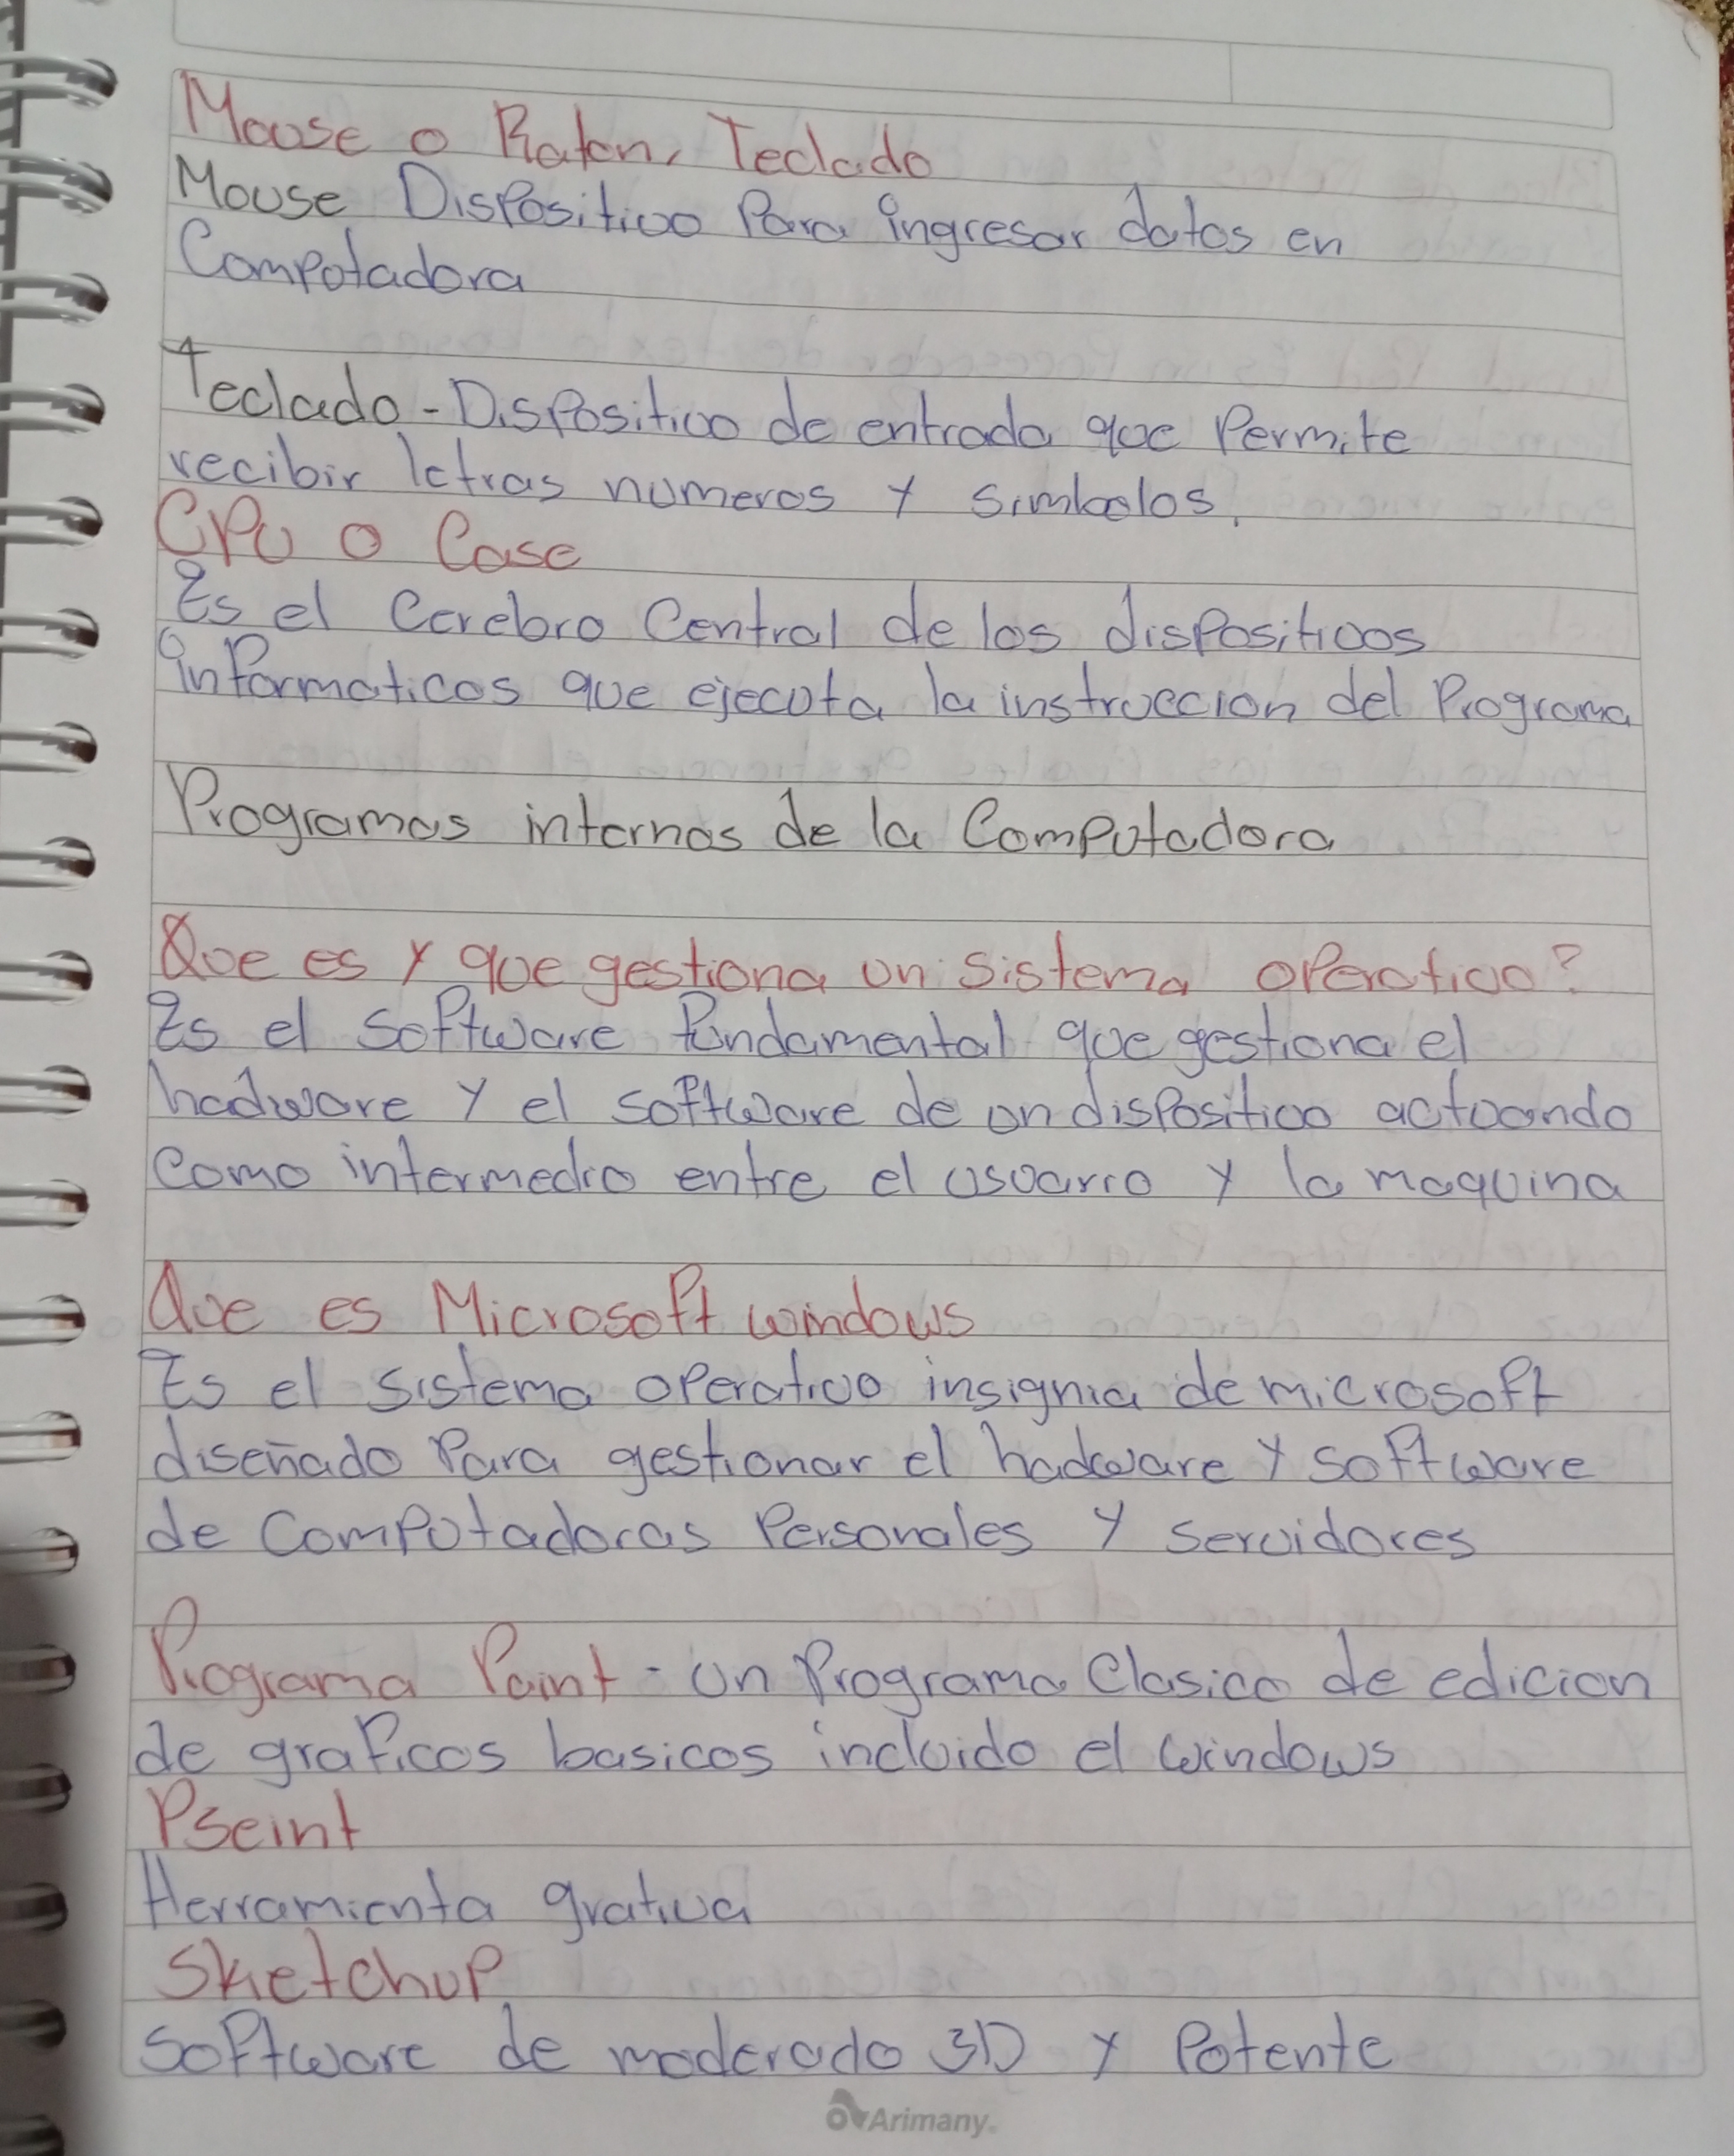 Mouse o Raton, Teclado
Mouse Dispositivo Para ingresar datos en
Computadora
Teclado - Dispositivo de entrada que Permite
recibir letras numeros y simbolos.
CPU o Case
Es el Cerebro Central de los dispositivos
informaticos que ejecuta la instruccion del Programa
Programas internos de la Computadora
Que es y que gestiona un sistema operativo?
Es el software fundamental que gestiona el
hadware y el software de un dispositivo actuando
Como intermedio entre el usuario y la maquina
Que es Microsoft windows
Es el sistema operativo insignia de microsoft
diseñado Para gestionar el hadware y software
de Computadoras Personales y servidores
Programa Paint - un Programa Clasico de edicion
de graficos basicos incluido el windows
Pseint
Herramienta grativa
Sketchup
software de moderado 3D y Potente
Arimany.